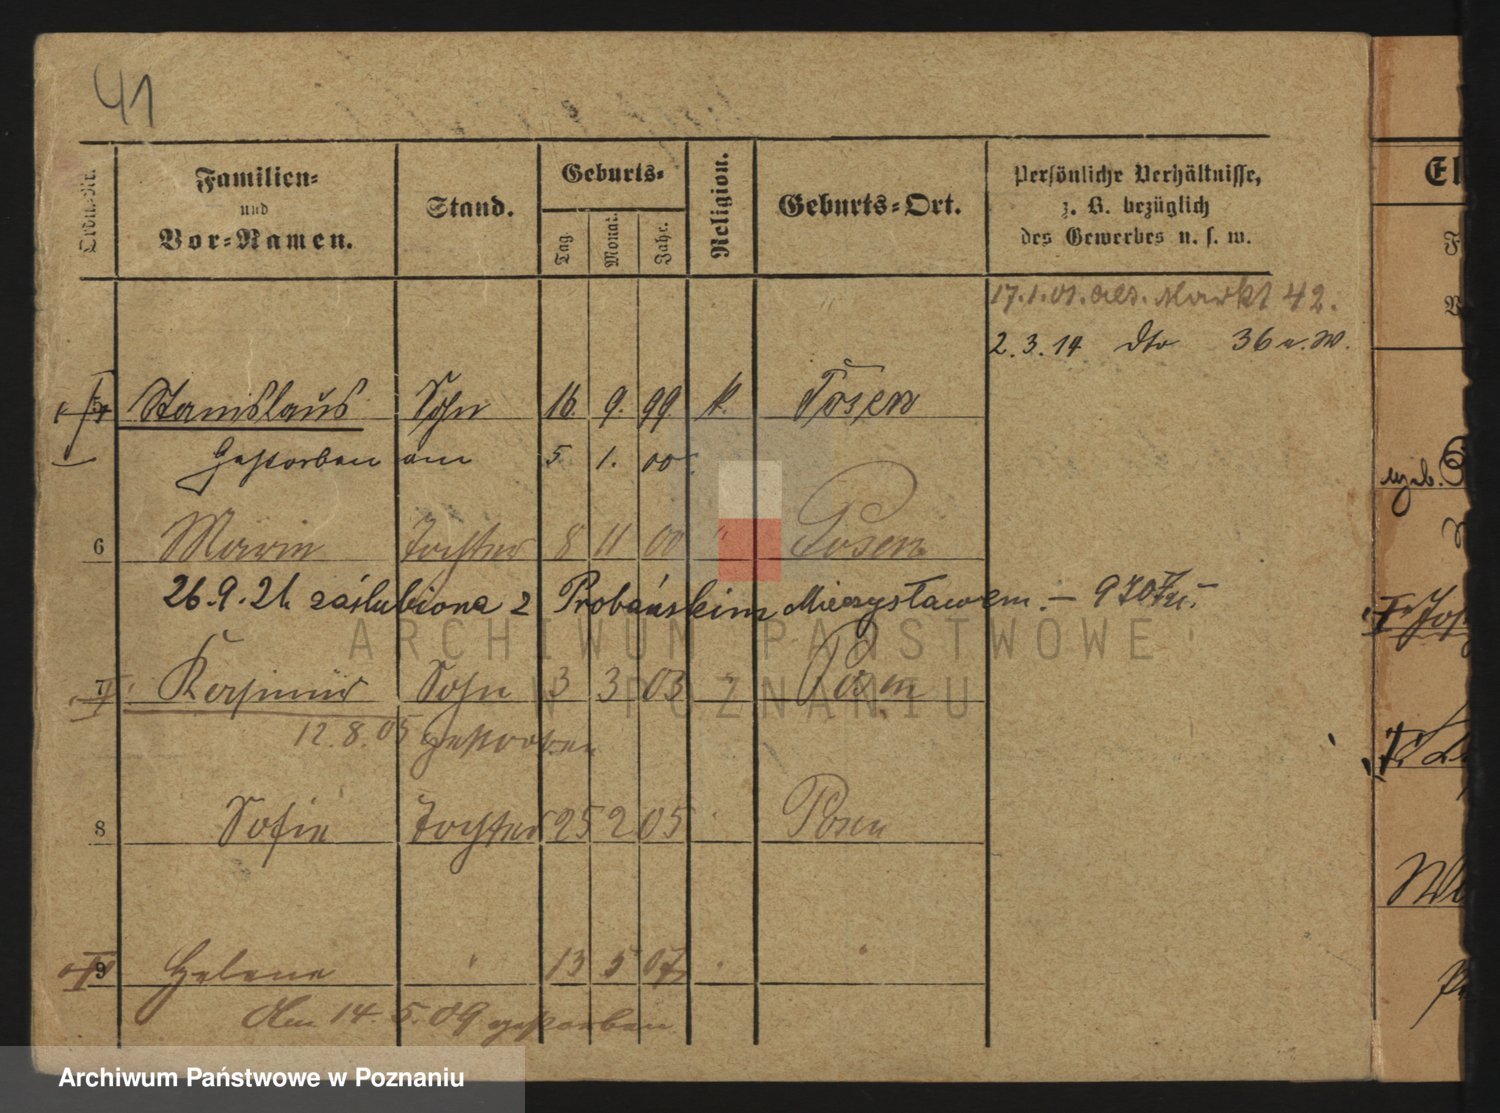 41
Ordn.-Nr.
Familien-
und
Vor-Namen.
Stand.
Geburts-
Tag.
Monat.
Jahr.
Religion.
Geburts-Ort.
Persönliche Verhältnisse,
z. B. bezüglich
des Gewerbes u. s. w.
17.1.01. Markt 42.
2.3.14 dto 36
5 Stanislaus Sohn 16 9. 99 k. Posen
Gestorben am 5 1. 00
6 Marie Tochter 8 11 00 " Posen
26.9.21. zaślubiona z Probańskim Mieczysławem. –
7 Kasimir Sohn 3 3 03 " Posen
12.8.05 gestorben
8 Sofie Tochter 25 2 05 Posen
9 Helene " 13 5 07 "
Am 14.5.09 gestorben
El
ARCHIWUM PAŃSTWOWE
W POZNANIU
Archiwum Państwowe w Poznaniu